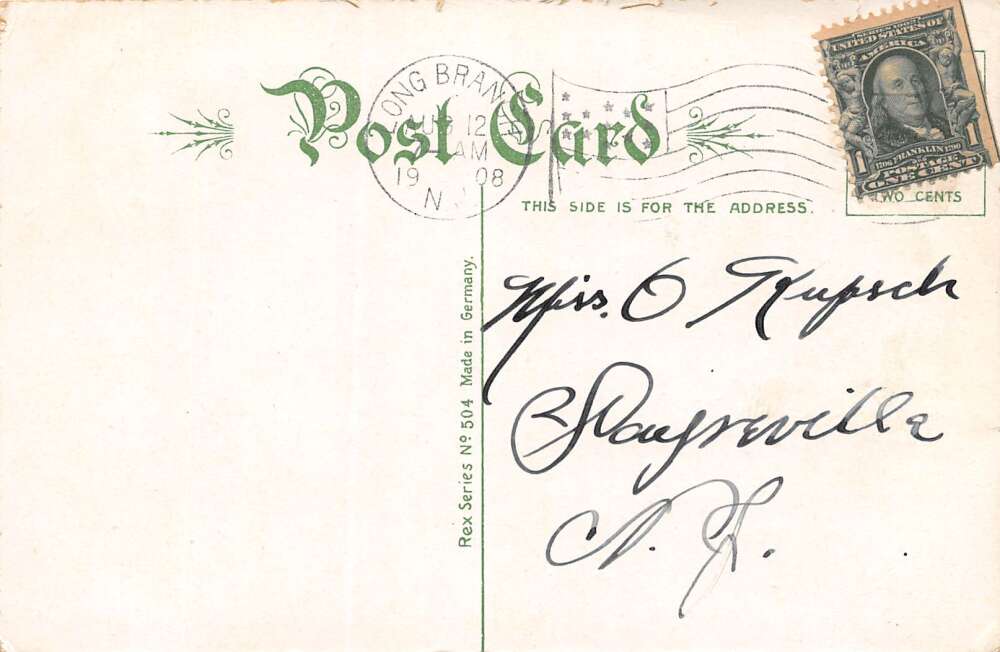 Post Card
LONG BRANCH
AUG 12
AM
1908
N.J.
SERIES 1902
UNITED STATES OF
AMERICA
1706 FRANKLIN 1790
POSTAGE
1 ONE CENT 1
TWO CENTS
THIS SIDE IS FOR THE ADDRESS.
Rex Series Nº 504 Made in Germany.
Miss. O Kupsch
Sayreville
N. J.